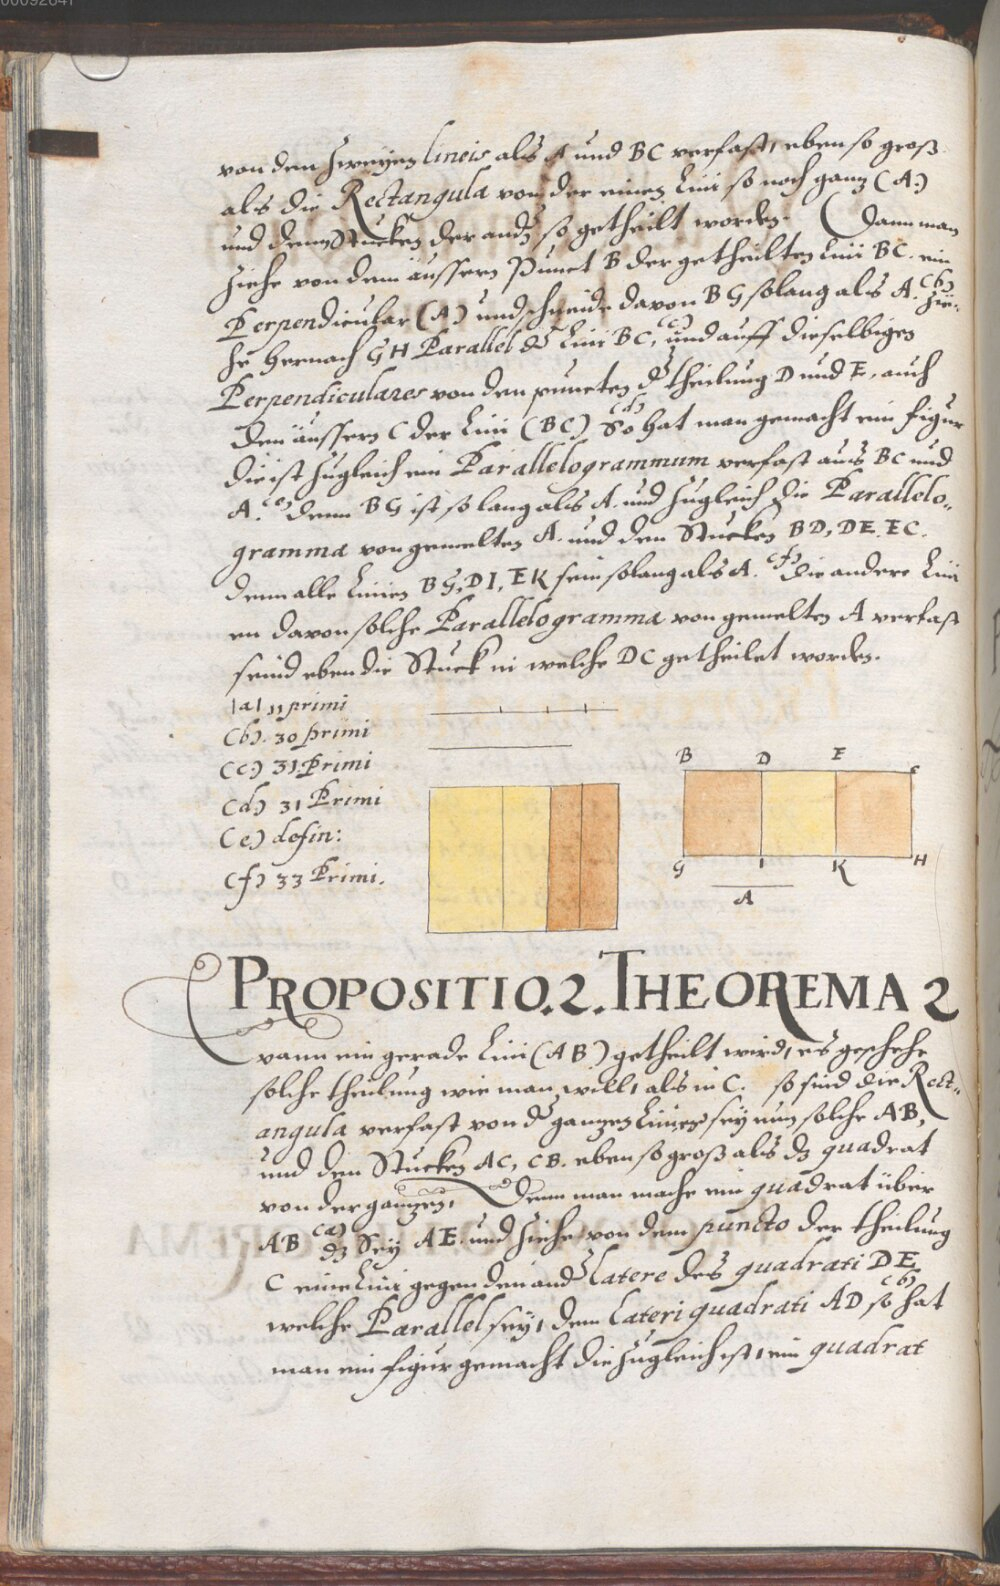 00092841
von den zweyen lineis als A und BC verfast, eben so groß
als die Rectangula von der einen Lini so noch ganz (A.)
und denen Stucken der andern so getheilt worden. Dann man
ziehe von dem äussern Punct B der getheilten Lini BC. ein
Perpendicular (A) und schneide davon BG so lang als A. (b) zie-
he hernach GH Parallel der Lini BC, (c) und auff dieselbigen
Perpendiculares von den puncten der theilung D und E, auch
den äussern C der Lini (BC) (d) So hat man gemacht ein figur
die ist zugleich ein Parallelogrammum verfast aus BC und
A. (e) denn BG ist so lang als A. und zugleich die Parallelo-
gramma von gemelten A. und den Stucken BD, DE, EC.
denn alle Linien BG, DI, EK sein so lang als A. (f) die andere Lini
en davon solche Parallelogramma von gemelten A verfast
seind eben die Stuck in welche DC getheilet worden.
|a| 11 primi
(b). 30 primi
(c) 31 Primi
(d) 31 Primi
(e) defin:
(f) 33 Primi.
B D E C
G I K H
A
PROPOSITIO. 2. THEOREMA 2
Wann ein gerade Lini (AB) getheilt wird, es geschehe
solche theilung wie man will, als in C. so sind die Rect-
angula verfast von der ganzen Linien sey nun solche AB,
und den Stucken AC, CB. eben so groß als dz quadrat
von der ganzen, Denn man mache ein quadrat über
AB (a) dz Sey AE. und ziehe von dem puncto der theilung
C eine Lini gegen den andern latere des quadrati DE,
welche Parallel sey, dem Lateri quadrati AD (b) so hat
man ein figur gemacht die zugleich ist, ein quadrat